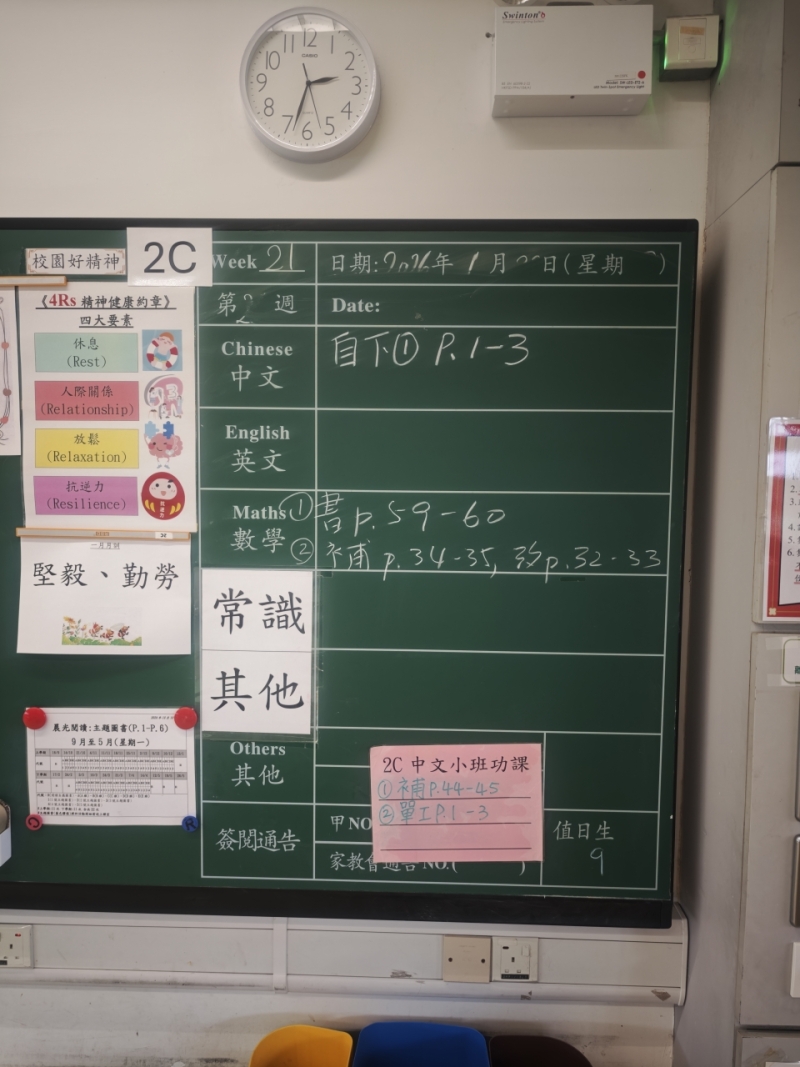 12
1
2
3
4
5
6
7
8
9
10
11
CASIO
Swinton
校園好精神
2C
Week 21
日期:2026年 1月 日(星期 )
《4Rs 精神健康約章》
四大要素
休息
(Rest)
人際關係
(Relationship)
放鬆
(Relaxation)
抗逆力
(Resilience)
第2 週
Date:
Chinese
中文
自下① P.1-3
English
英文
Maths
數學
① 書p.59-60
② 補p.34-35, p.32-33
堅毅、勤勞
常識
其他
晨光閱讀:主題圖書(P.1-P.6)
9月至5月(星期一)
Others
其他
2C 中文小班功課
① 補P.44-45
② 單工P.1-3
簽閱通告
甲NO
家教會通告NO.( )
值日生
9